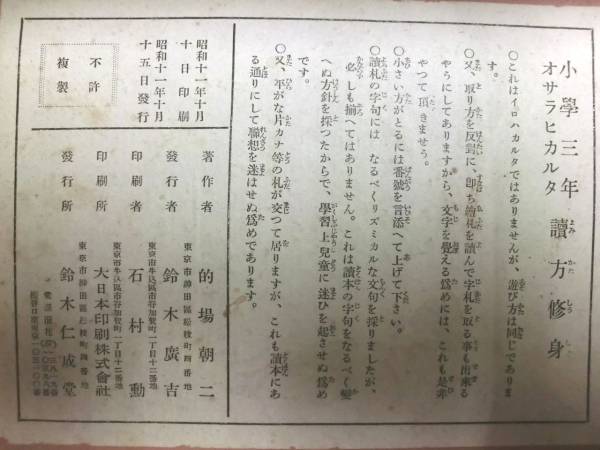 小學三年 讀方修身
オサラヒカルタ
○これはイロハカルタではありませんが、遊び方は同じでありま
す。
○又、取り方を反對に、即ち讀札を讀んで字札を取る事も出來る
やうにしてありますから、文字を覺える爲めには、これも是非
やつて頂きませう。
○小さい方がとるには番號を言添へて上げて下さい。
○讀札の字句には なるべくリズミカルな文句を採りましたが、
必しも揃へてはありません。これは讀本の字句をなるべく變
へぬ方針を採つたからで、學習上兒童に迷ひを起させぬ爲め
です。
○又、平がな片カナ等の札が交つて居りますが、これも讀本にあ
る通りにして聯想を迷はせぬ爲めであります。
昭和十一年十月
十日印刷
昭和十一年十月
十五日發行
不許
複製
著作者 的場朝二
東京市神田區松枝町四番地
發行者 鈴木廣吉
東京市牛込區市谷加賀町一丁目十二番地
印刷者 石村勳
東京市牛込區市谷加賀町一丁目十二番地
印刷所 大日本印刷株式會社
東京市神田區松枝町四番地
發行所 鈴木仁成堂